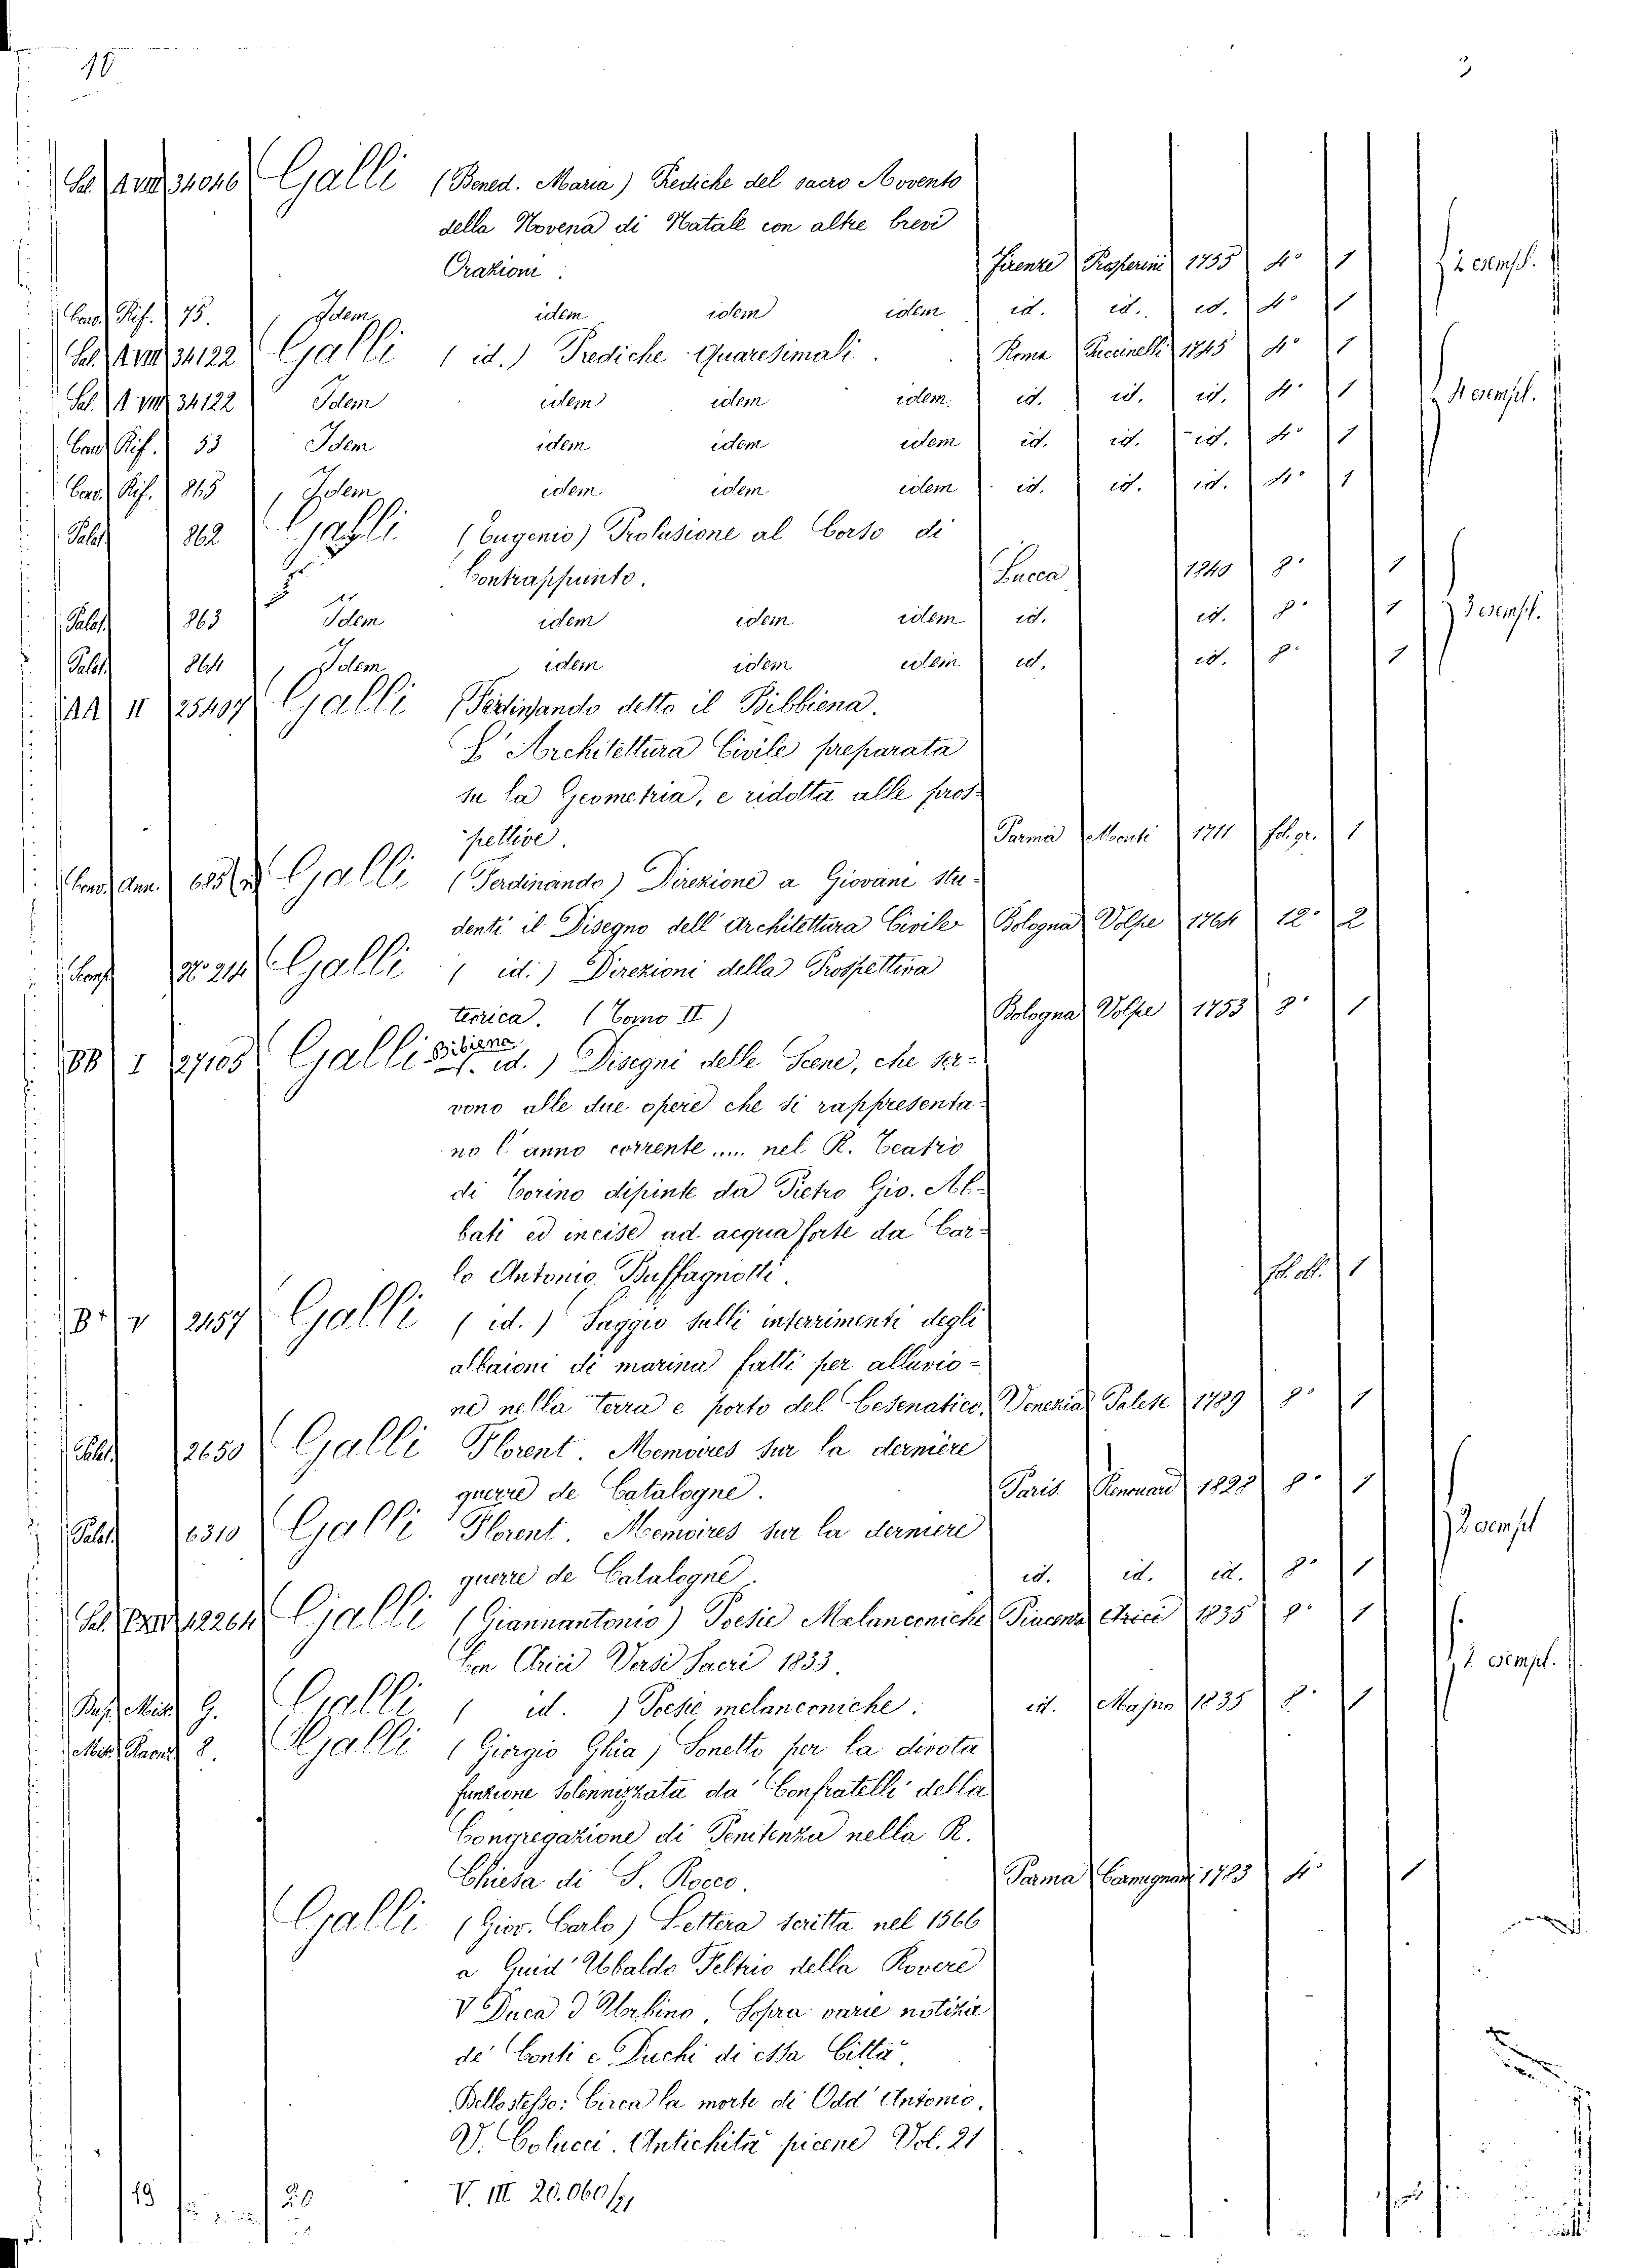 18 3
Sal. A VIII 34046 Galli (Bened. Maria) Prediche del sacro Avvento
della Novena di Natale con altre brevi
Orazioni. Firenze Properini 1755 4° 1 2 esempl.
Cons. Rif. 75. Idem idem idem idem id. id. id. 4° 1
Sal. A VIII 34122 Galli ( id.) Prediche Quaresimali. Roma Puccinelli 1745 4° 1
Sal. A VIII 34122 Idem idem idem idem id. id. id. 4° 1 4 esempl.
Cons. Rif. 53 Idem idem idem idem id. id. id. 4° 1
Cons. Rif. 865 Idem idem idem idem id. id. id. 4° 1
Palat. 862 Galli (Eugenio) Prolusione al Corso di
Contrappunto. Lucca 1840 8° 1
Palat. 863 Idem idem idem idem id. id. 8° 1 3 esempl.
Palat. 864 Idem idem idem idem id. id. 8° 1
AA II 25407 Galli (Ferdinando detto il Bibbiena.
L'Architettura Civile preparata
su la Geometria, e ridotta alle pros-
pettive. Parma Monti 1711 fol. gr. 1
Galli (Ferdinando) Direzione a Giovani stu-
denti il Disegno dell'Architettura Civile Bologna Volpe 1764 12° 2
N° 214 Galli ( id.) Direzioni della Prospettiva
teorica. (Tomo II) Bologna Volpe 1753 8° 1
BB I 27105 Galli Bibiena (F. id.) Disegni delle Scene, che ser-
vono alle due opere che si rappresenta-
no l'anno corrente ..... nel R. Teatro
di Torino dipinte da Pietro Gio. Ab-
bati ed incise ad acqua forte da Car-
lo Antonio Buffagnotti. fol. obl. 1
B* V 2457 Galli ( id.) Saggio sulli interrimenti degli
alvaioni di marina fatti per alluvio-
ne nella terra e porto del Cesenatico. Venezia Palese 1789 8° 1
Palat. 2650 Galli Florent. Memoires sur la dernière
guerre de Catalogne. Paris Renouard 1828 8° 1
Palat. 6310 Galli Florent. Memoires sur la derniere
guerre de Catalogne. id. id. id. 8° 1 2 esempl
12264 Galli (Giannantonio) Poesie Melanconiche Piacenza 1835 8° 1
Con Versi Sacri 1833. 2 esempl.
G. Galli ( id. ) Poesie melanconiche. id. Majno 1835 8° 1
8. Galli (Giorgio Ghia) Sonetto per la divota
funzione solennizzata da' Confratelli della
Congregazione di Penitenza nella R.
Chiesa di S. Rocco. Parma Carmignani 1783 4° 1
Galli (Giov. Carlo) Lettera scritta nel 1566
a Guid'Ubaldo Feltrio della Rovere
V Duca d'Urbino, Sopra varie notizie
de' Conti e Duchi di essa Città.
Dello stesso: Circa la morte di Odd'Antonio.
V. Colucci. Antichità picene Vol. 21
V. III 20.060/21
19 20